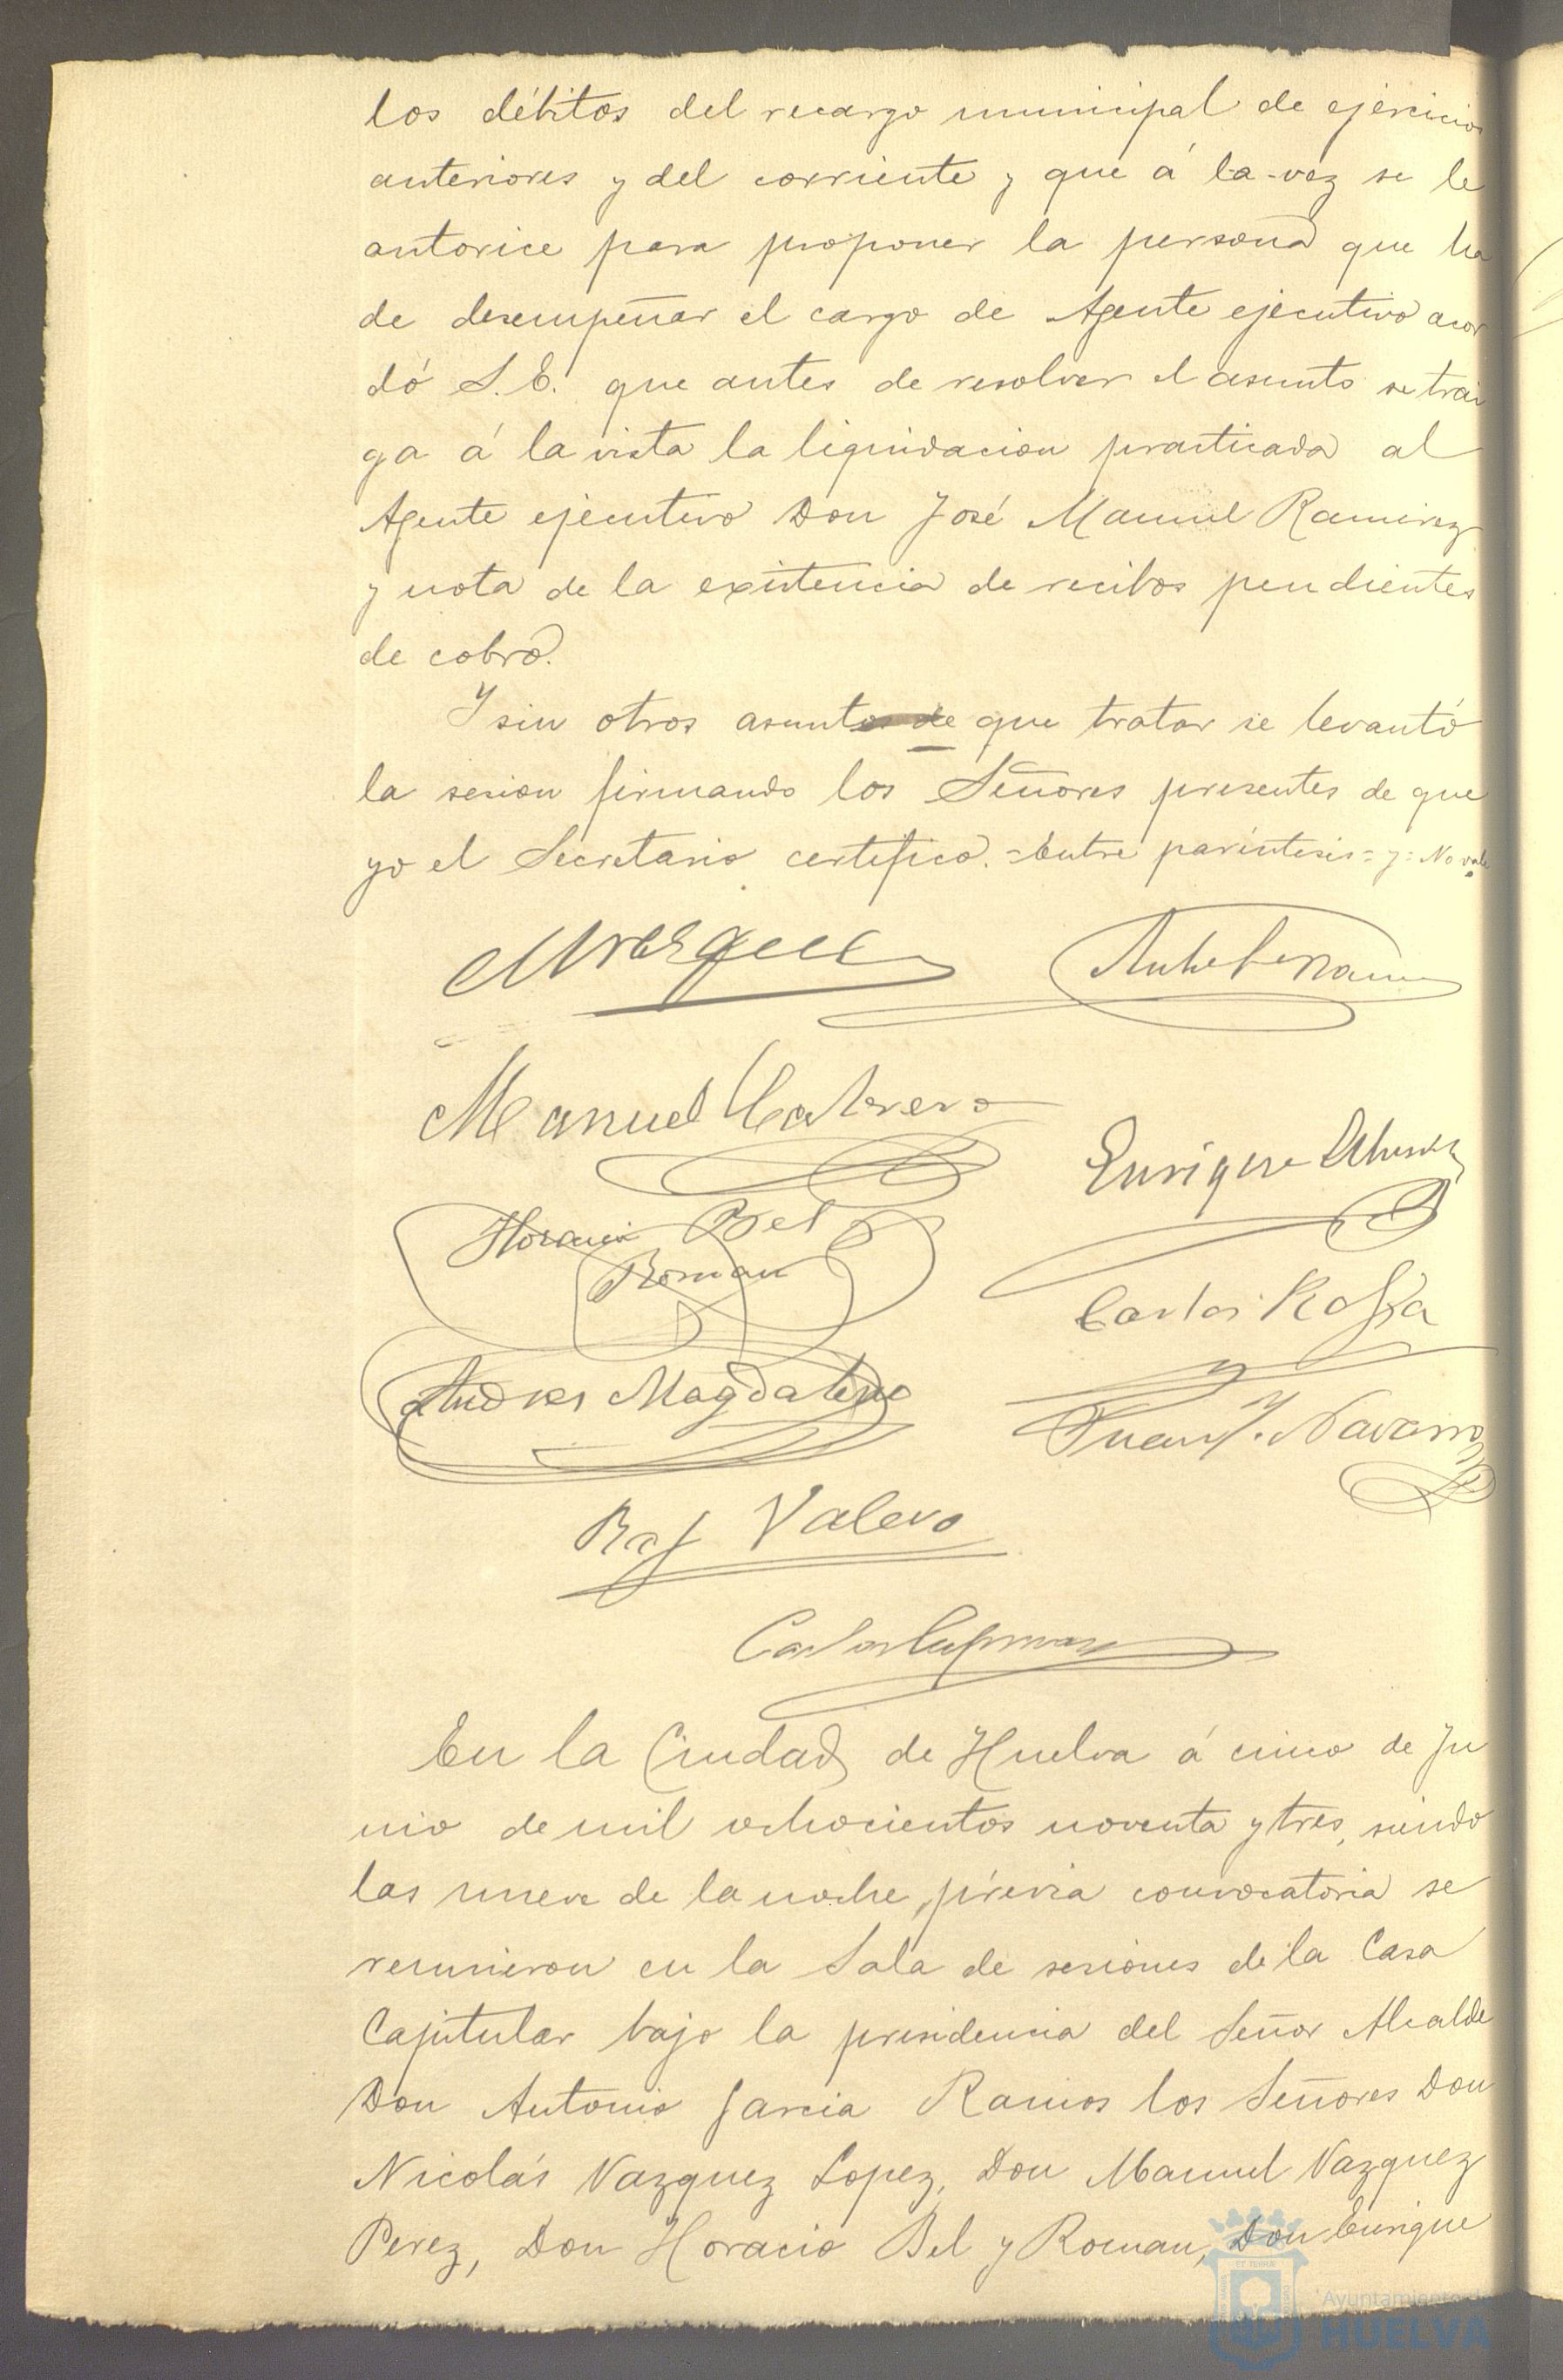 los débitos del recargo municipal de ejercicios
anteriores y del corriente y que á la vez se le
autorice para proponer la persona que ha
de desempeñar el cargo de Agente ejecutivo acor
dó S. E. que antes de resolver el asunto se trai
ga á la vista la liquidacion practicada al
Agente ejecutivo Don José Manuel Ramirez
y nota de la existencia de recibos pendientes
de cobro.
Y sin otros asuntos de que tratar se levantó
la sesion firmando los Señores presentes de que
yo el Secretario certifico. = Entre paréntesis = y = No vale
Manuel Cabrera
Enrique
Horacio Bel
Roman
Carlos
Andres Magdaleno
Juan J. Navarro
Raf Valero
Carlos
En la Ciudad de Huelva á cinco de Ju
nio de mil ochocientos noventa y tres, siendo
las nueve de la noche, prévia convocatoria se
reunieron en la Sala de sesiones de la Casa
Capitular bajo la presidencia del Señor Alcalde
Don Antonio Garcia Ramos los Señores Don
Nicolás Vazquez Lopez, Don Manuel Vazquez
Perez, Don Horacio Bel y Roman, Don Enrique
Ayuntamiento de
HUELVA